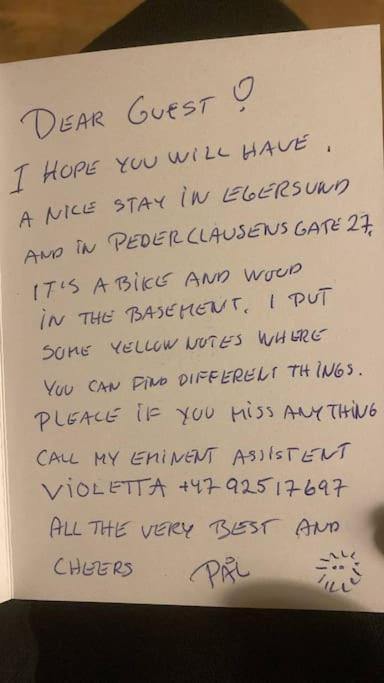 DEAR GUEST!
I HOPE YOU WILL HAVE
A NICE STAY IN EGERSUND
AND IN PEDER CLAUSENS GATE 27.
IT'S A BIKE AND WOOD
IN THE BASEMENT. I PUT
SOME YELLOW NOTES WHERE
YOU CAN FIND DIFFERENT THINGS.
PLEACE IF YOU MISS ANYTHING
CALL MY EMINENT ASSISTENT
VIOLETTA +47 92517697
ALL THE VERY BEST AND
CHEERS PÅL